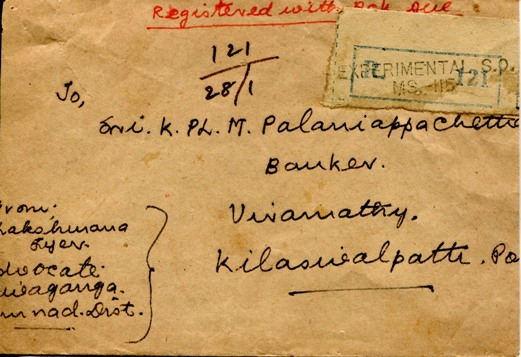 Registered with ack due
121
28/1
EXPERIMENTAL S.O.
R 121
MS.-115
To,
Sri. K. PL. M. Palaniappachettia
Banker.
Viramathy.
Kilasivalpatti. Po
From:
Lakshmana
Iyer.
Advocate.
Sivaganga.
Ramnad. Dist.